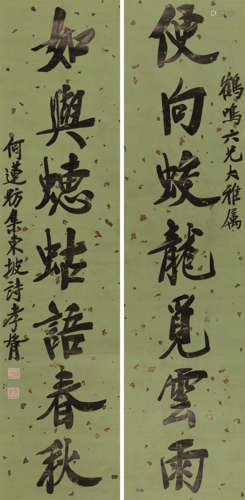 鶴鳴六兄大雅属
便向蛟龍覓雲雨
如與蟪蛄語春秋
何蓮舫集東坡詩孝胥